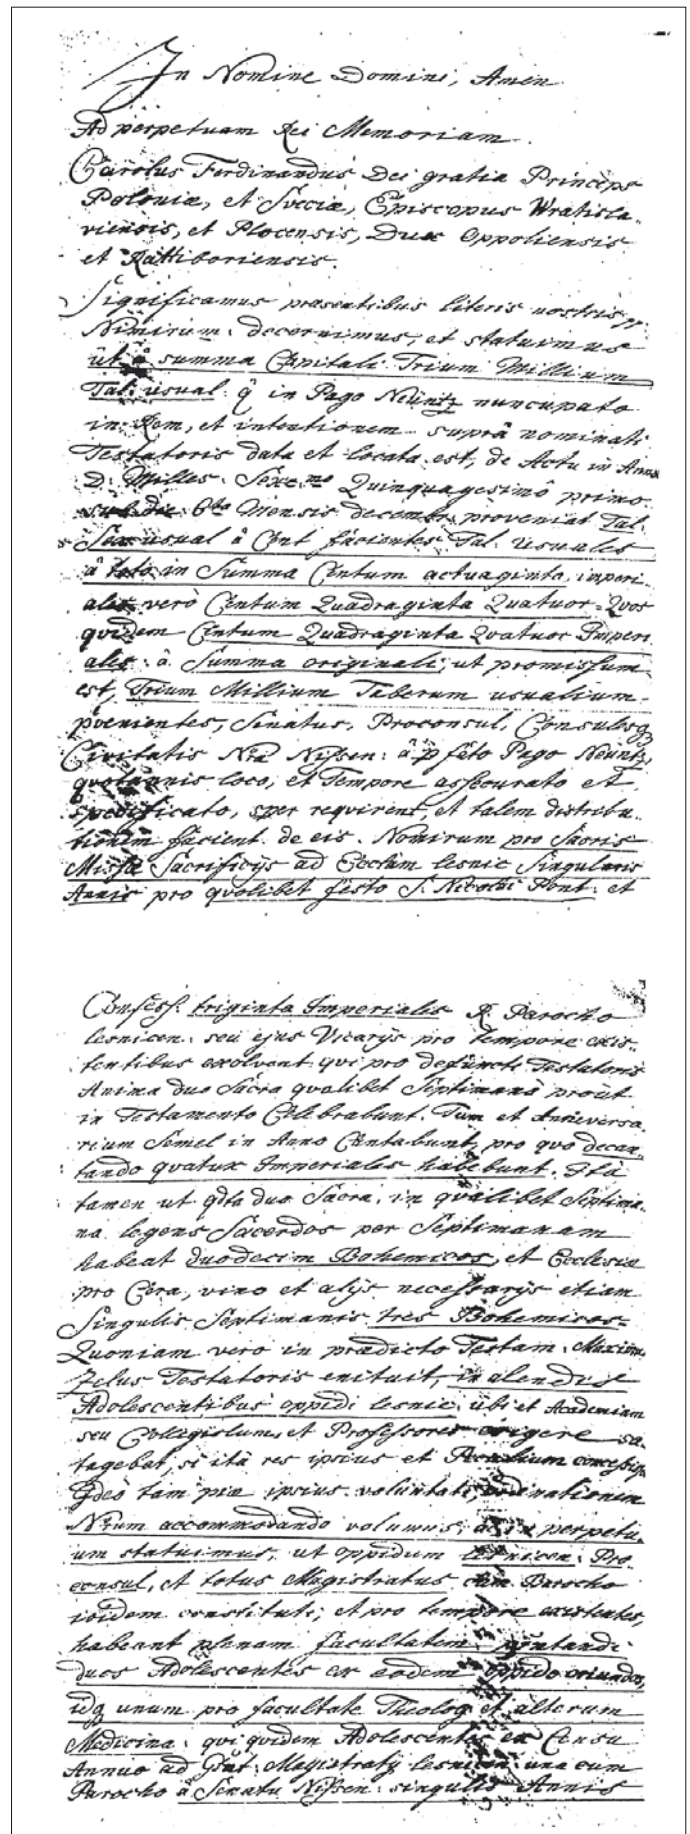 In Nomine Domini, Amen
Ad perpetuam Rei Memoriam.
Carolus Ferdinandus Dei gratia Princeps
Poloniæ, et Sveciæ, Episcopus Wratisla-
viensis, et Plocensis, Dux Oppoliensis
et Rattiboriensis.
Significamus præsentibus literis nostris pp.
Nimirum: decernimus, et statuimus
ut â summa Capitali Trium Millium
Tal: usual: q̂ in Pago Neüntz nuncupato
in Rem, et intentionem suprâ nominati
Testatoris data et locata est, de Actu in Anno
D. Milles: Sexc.mo Quinquagesimô primo
sub die 6ta Mensis decembr. proveniat Tal.
Sex usual â Cent facientes Tal. usuales
â toto in Summa Centum actuaginta, imperi-
ales verò Centum Quadraginta Quatuor. Quos
quidem Centum Quadraginta Quatuor Imperi
ales: â Summa originali, ut promissum
est, Trium Millium Talerum usualium
pvenientes, Senatus, Proconsul, Consulesq
Civitatis Nrã Nissen: â p fẽto Pago Neüntz,
quotannis loco, et Tempore assecurato et
specificato, sper requirent, et talem distribu-
tionem facient de eis. Nomirum pro Sacris
Missæ Sacrificijs ad Ecclam lesnic Singularis
Annis pro quolibet festo S. Nicolai Pont: et
Confess. triginta Imperiales R. Parocho
lesnicen: seu ejus Vicarijs pro tempore exis-
tentibus exolvent, qui pro defuncti Testatoris
Anima duo Sacra qualibet Septimanâ proüt
in Testamento Celebrabunt. Tum et Anniversa-
rium Semel in Anno Cantabunt, pro quo decan-
tando quatux Imperiales habebunt. Ità
tamen ut qdta duo Sacra, in quâlibet Septima-
na legens Sacerdos per Septimanam
habeat duodecim Bohemicos, et Ecclesiæ
pro Cera, vino et alijs necessarijs etiam
Singulis Septimanis tres Bohemicos.
Quoniam vero in prædicto Testam: Maxim
Zelus Testatoris enituit, in alendis
Adolescentibus oppidi lesnic: ubi et Academiam
seu Collegiolum, et Professores erigere sa-
tagebat, si ità res ipsius et concessiss.
Ideò tam piæ ipsius voluntati, ordinationem
Nrãm accommodando volumus, ac in perpetu-
um statuimus, ut oppidum lesnicen: Pro
consul, et totus Magistratus cum Parocho
ibidem constituti; et pro tempore existentes,
habeant plenam facultatem pntandi
duos Adolescentes ex eodem oppido oriundos,
idq unum pro facultate Theolog et alterum
Medicina: qui quidem Adolescentes ex Censu
Annuo ad Magistratus lesnicen: una cum
Parocho â Senatu Nissen: singulis Annis